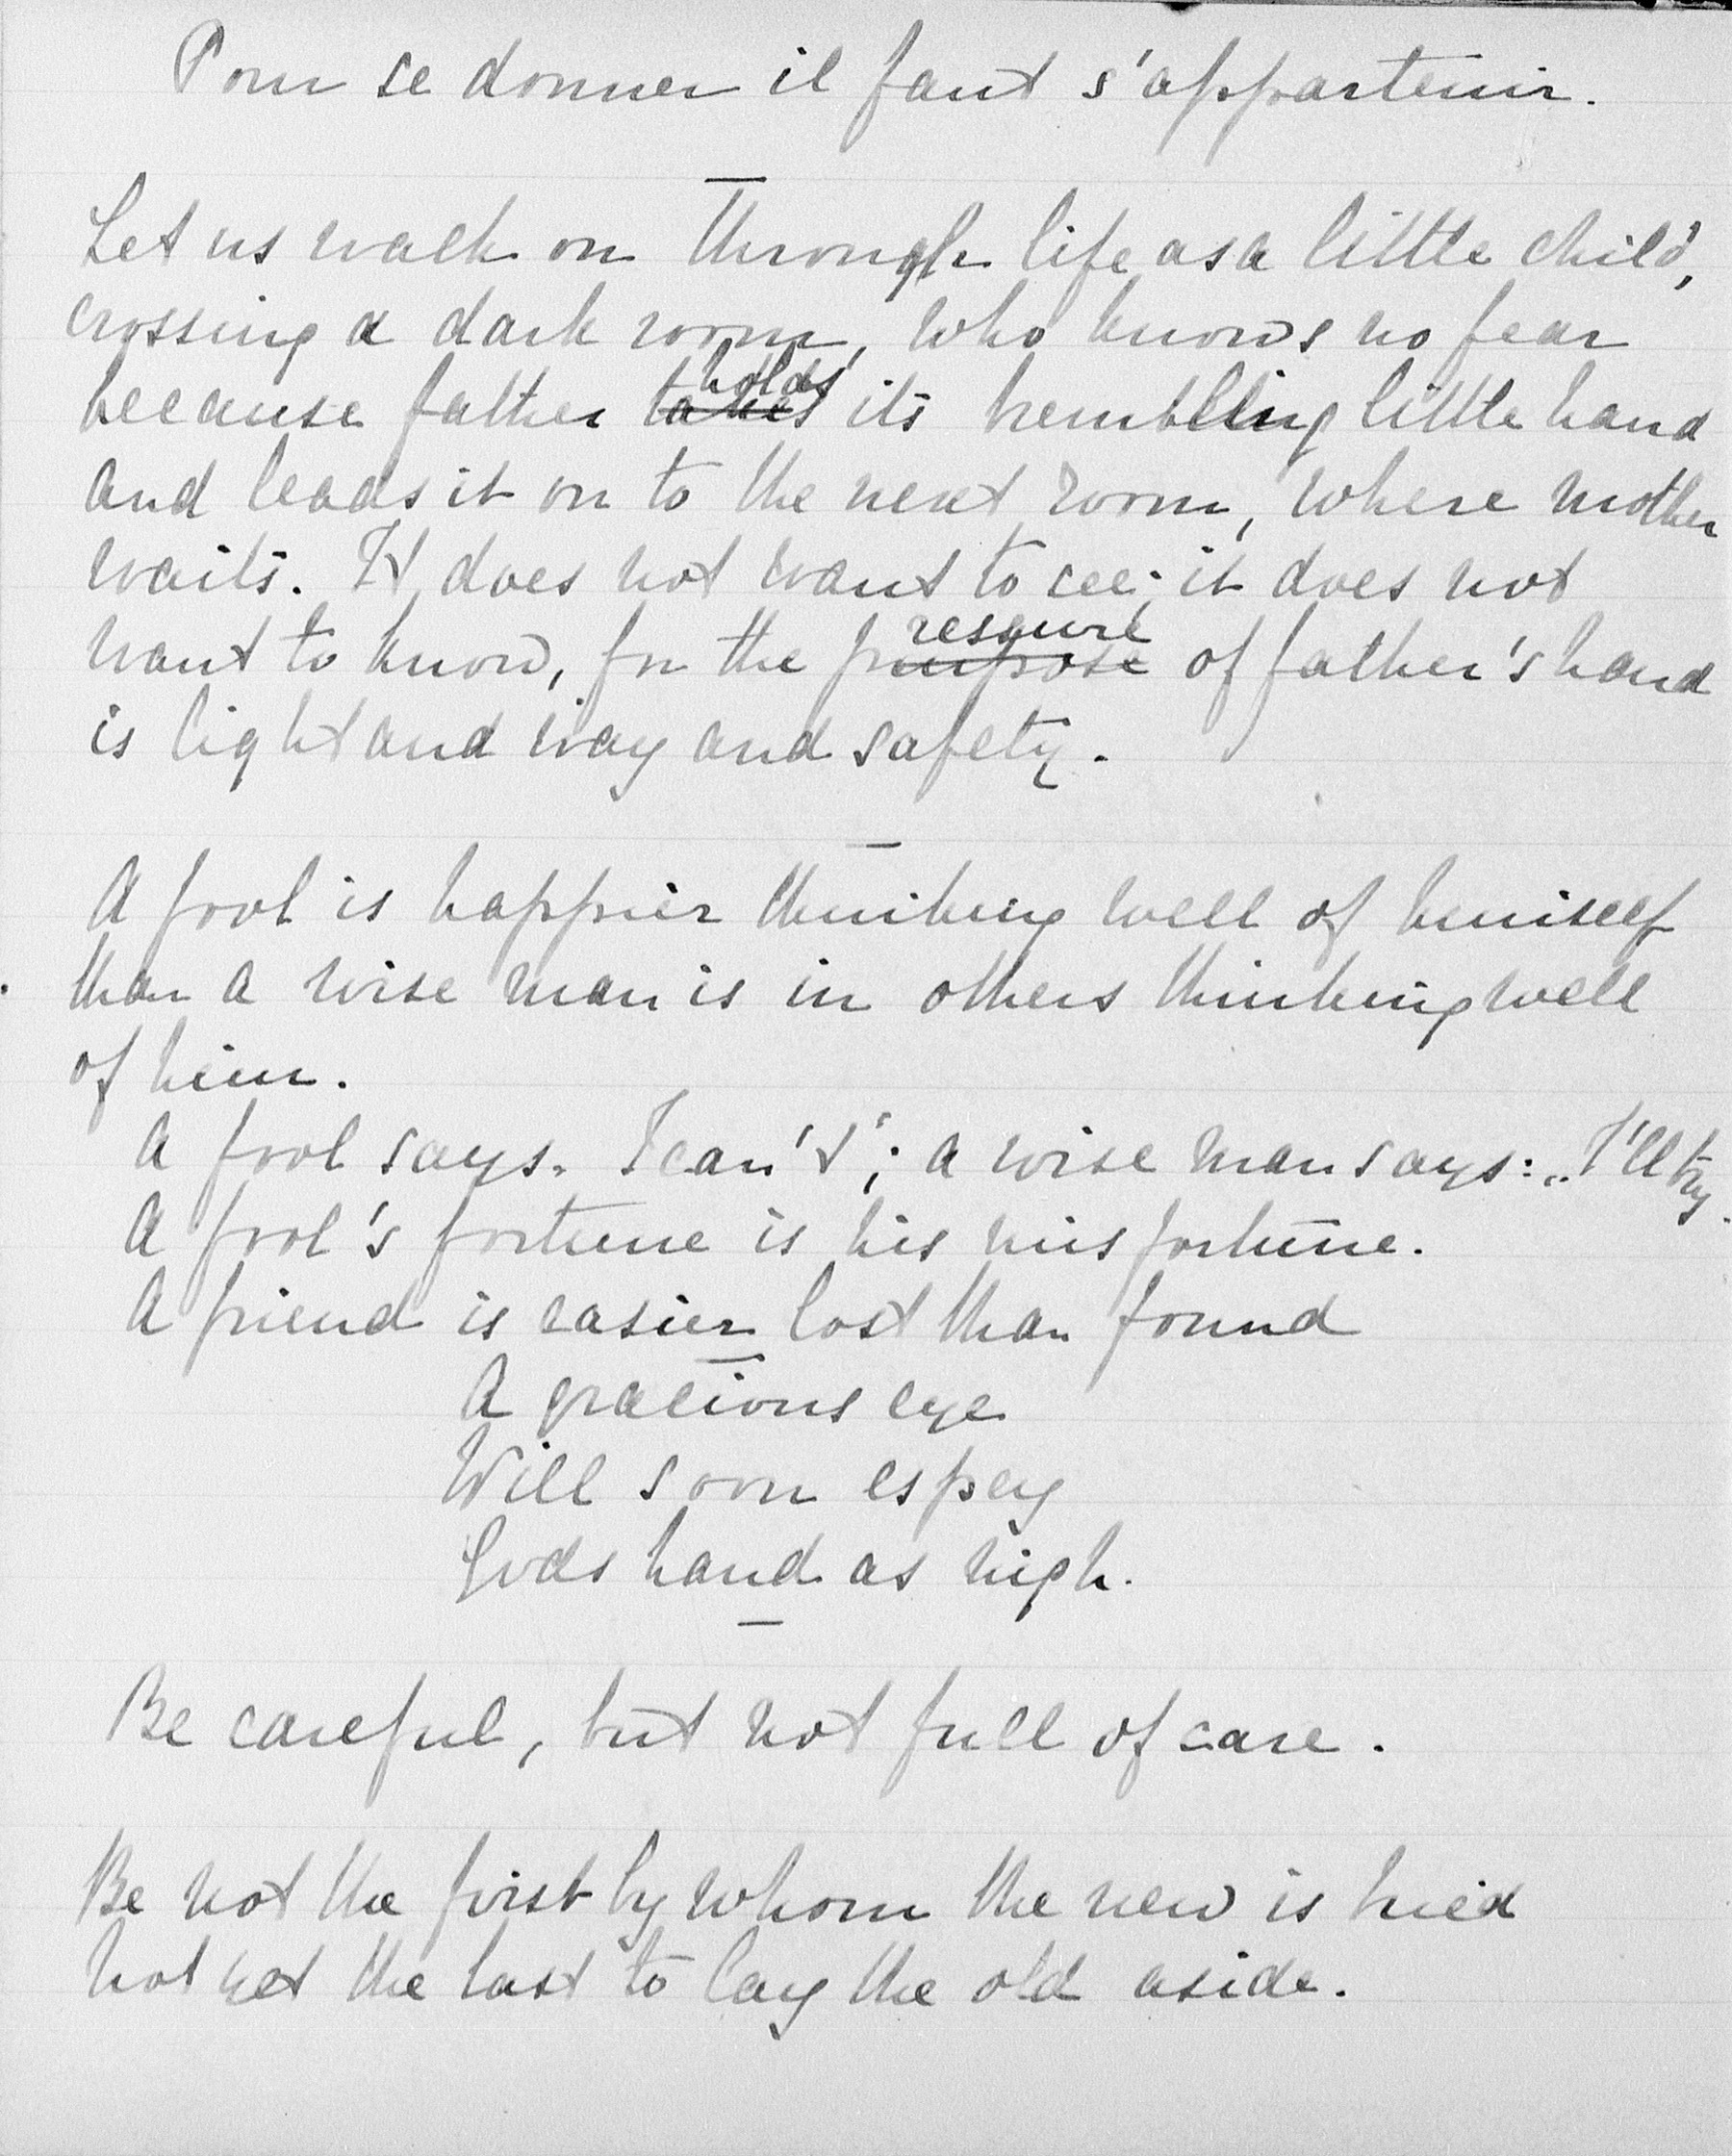 Pour se donner il faut s'appartenir.
Let us walk on through life as a little child,
crossing a dark room, who knows no fear
holds
because father takes its trembling little hand
and leads it on to the next room, where mother
waits. It does not want to see; it does not
want to know, for the purpose of father's hand
is light and way and safety.
A fool is happier thinking well of himself
than a wise man is in others thinking well
of him.
A fool says. I can't'; a wise man says: „I'll try.
A fool's fortune is his misfortune.
A friend is easier lost than found
A gracious eye
Will soon espey
Gods hand as nigh.
Be careful, but not full of care.
Be not the first by whom the new is tried
Not yet the last to lay the old aside.